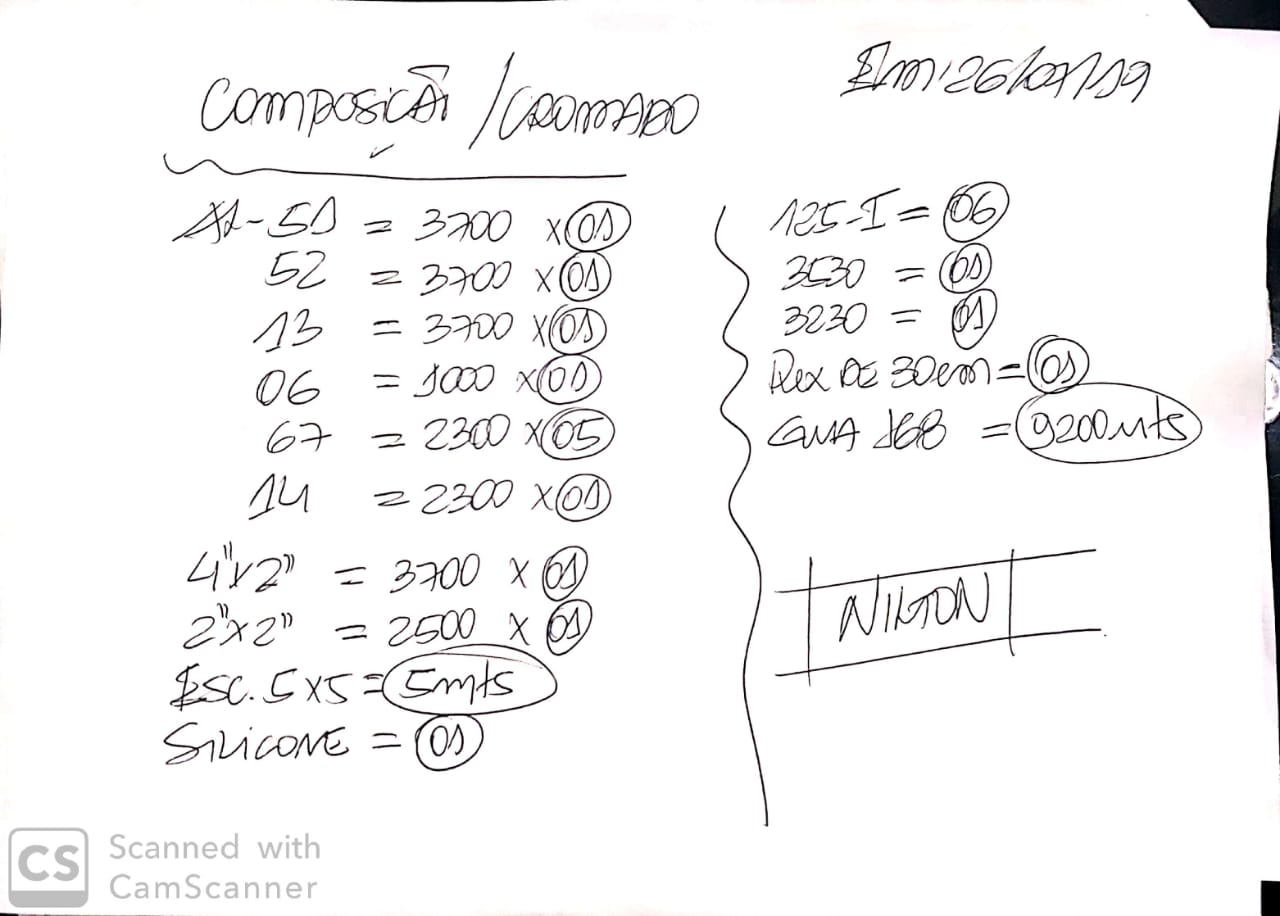 COMPOSIÇÃO / CROMADO
Em: 26/07/19
AL-51 = 3700 x 01
52 = 3700 x 01
13 = 3700 x 01
06 = 1000 x 01
67 = 2300 x 05
14 = 2300 x 01
4"x2" = 3700 x 01
2"x2" = 2500 x 01
ESC. 5x5 = 5mts
SILICONE = 01
125-I = 06
3530 = 01
3230 = 01
DE 30cm = 01
= 9200mts
NILTON
CS Scanned with
CamScanner